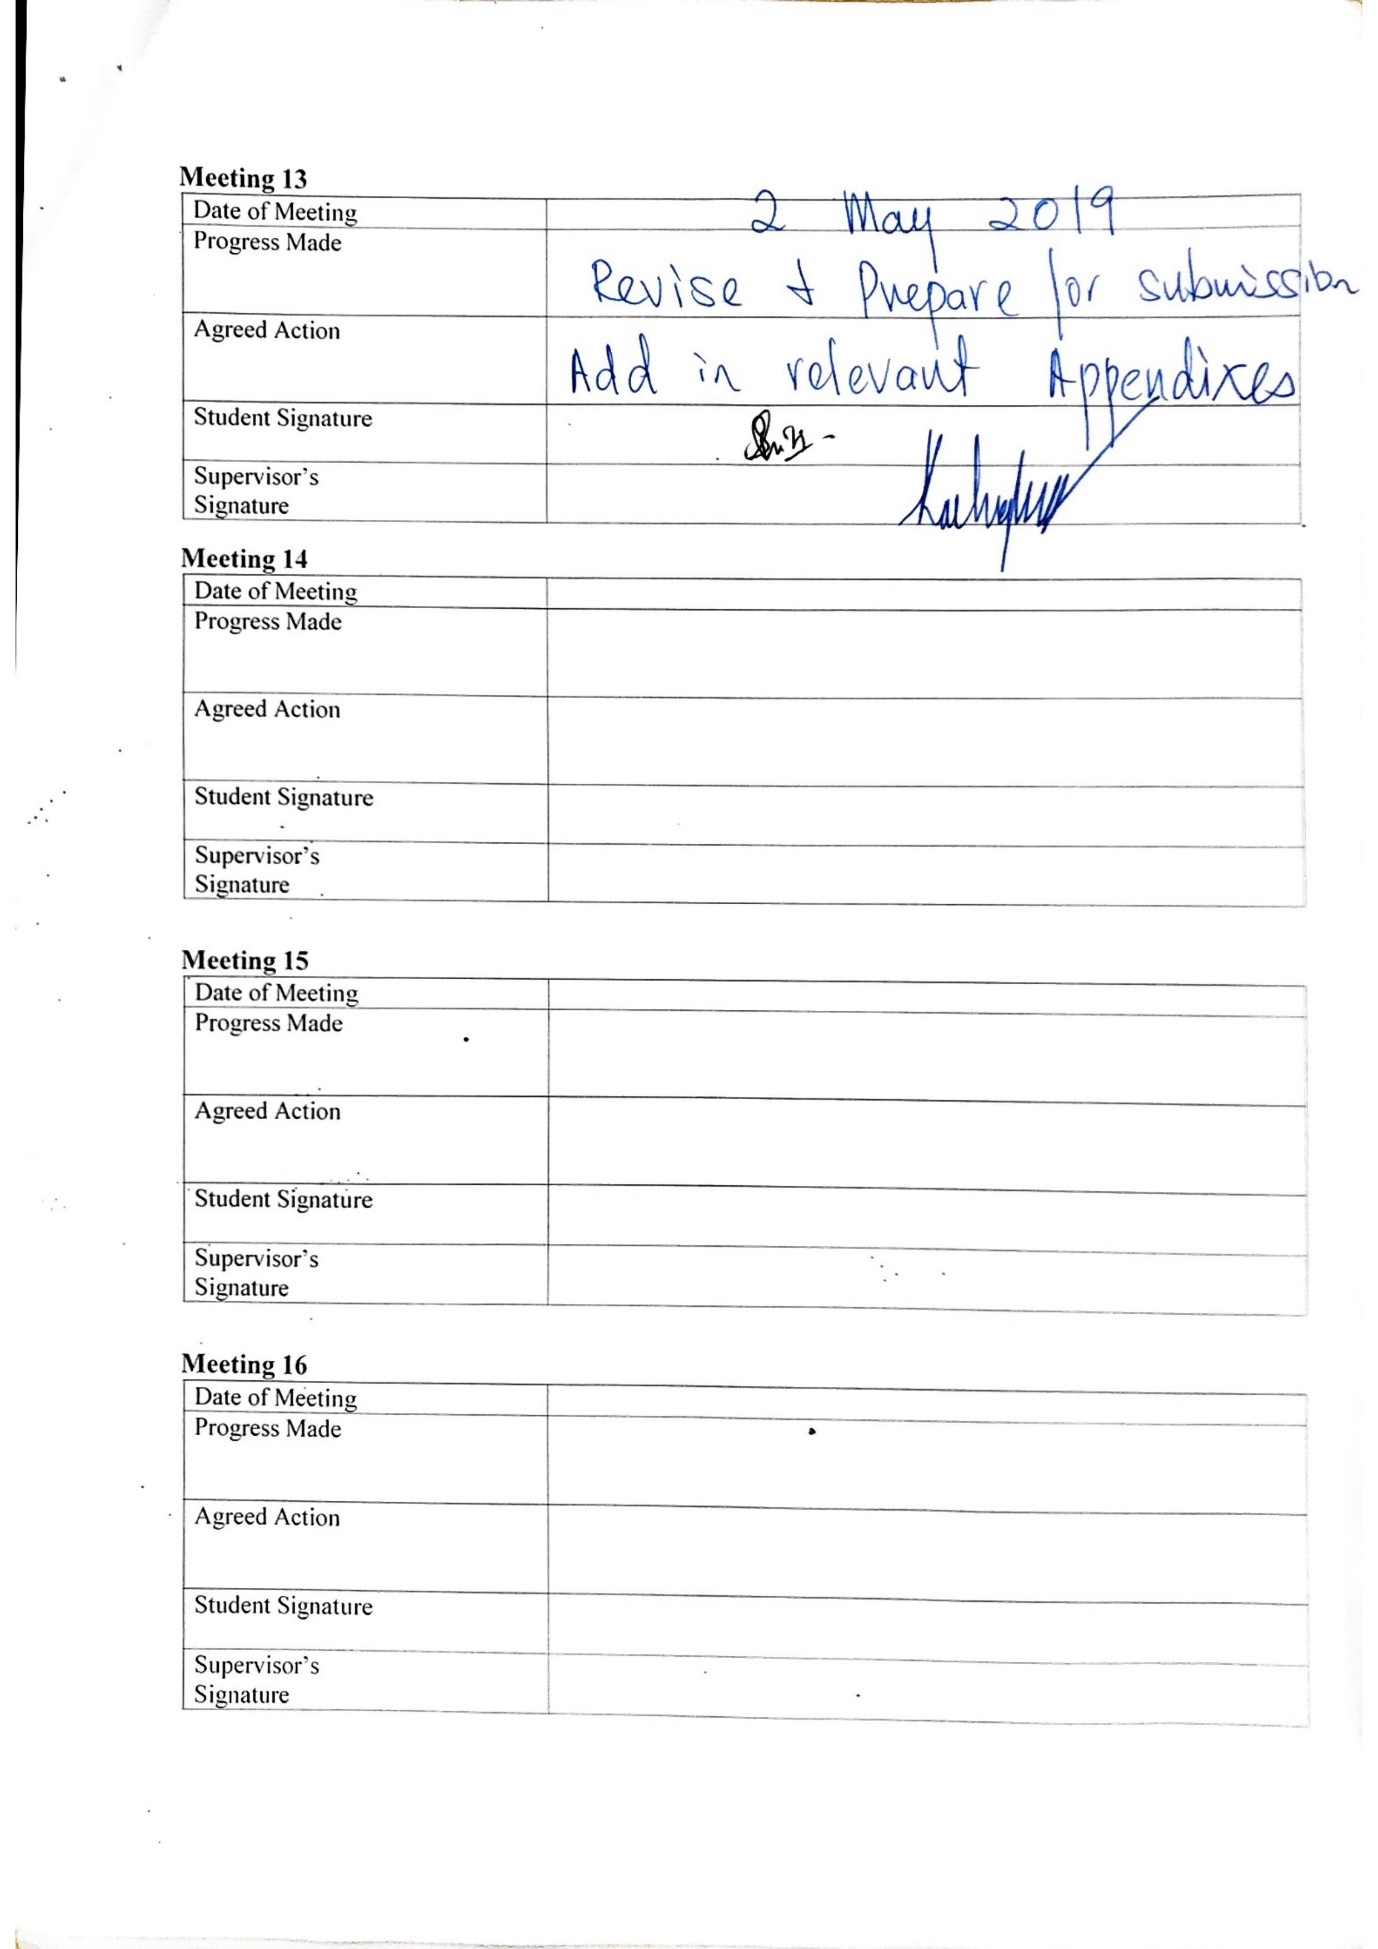 Meeting 13
Date of Meeting 2 May 2019
Progress Made Revise & Prepare for submission
Agreed Action Add in relevant Appendixes
Student Signature
Supervisor's
Signature
Meeting 14
Date of Meeting
Progress Made
Agreed Action
Student Signature
Supervisor's
Signature
Meeting 15
Date of Meeting
Progress Made
Agreed Action
Student Signature
Supervisor's
Signature
Meeting 16
Date of Meeting
Progress Made
Agreed Action
Student Signature
Supervisor's
Signature